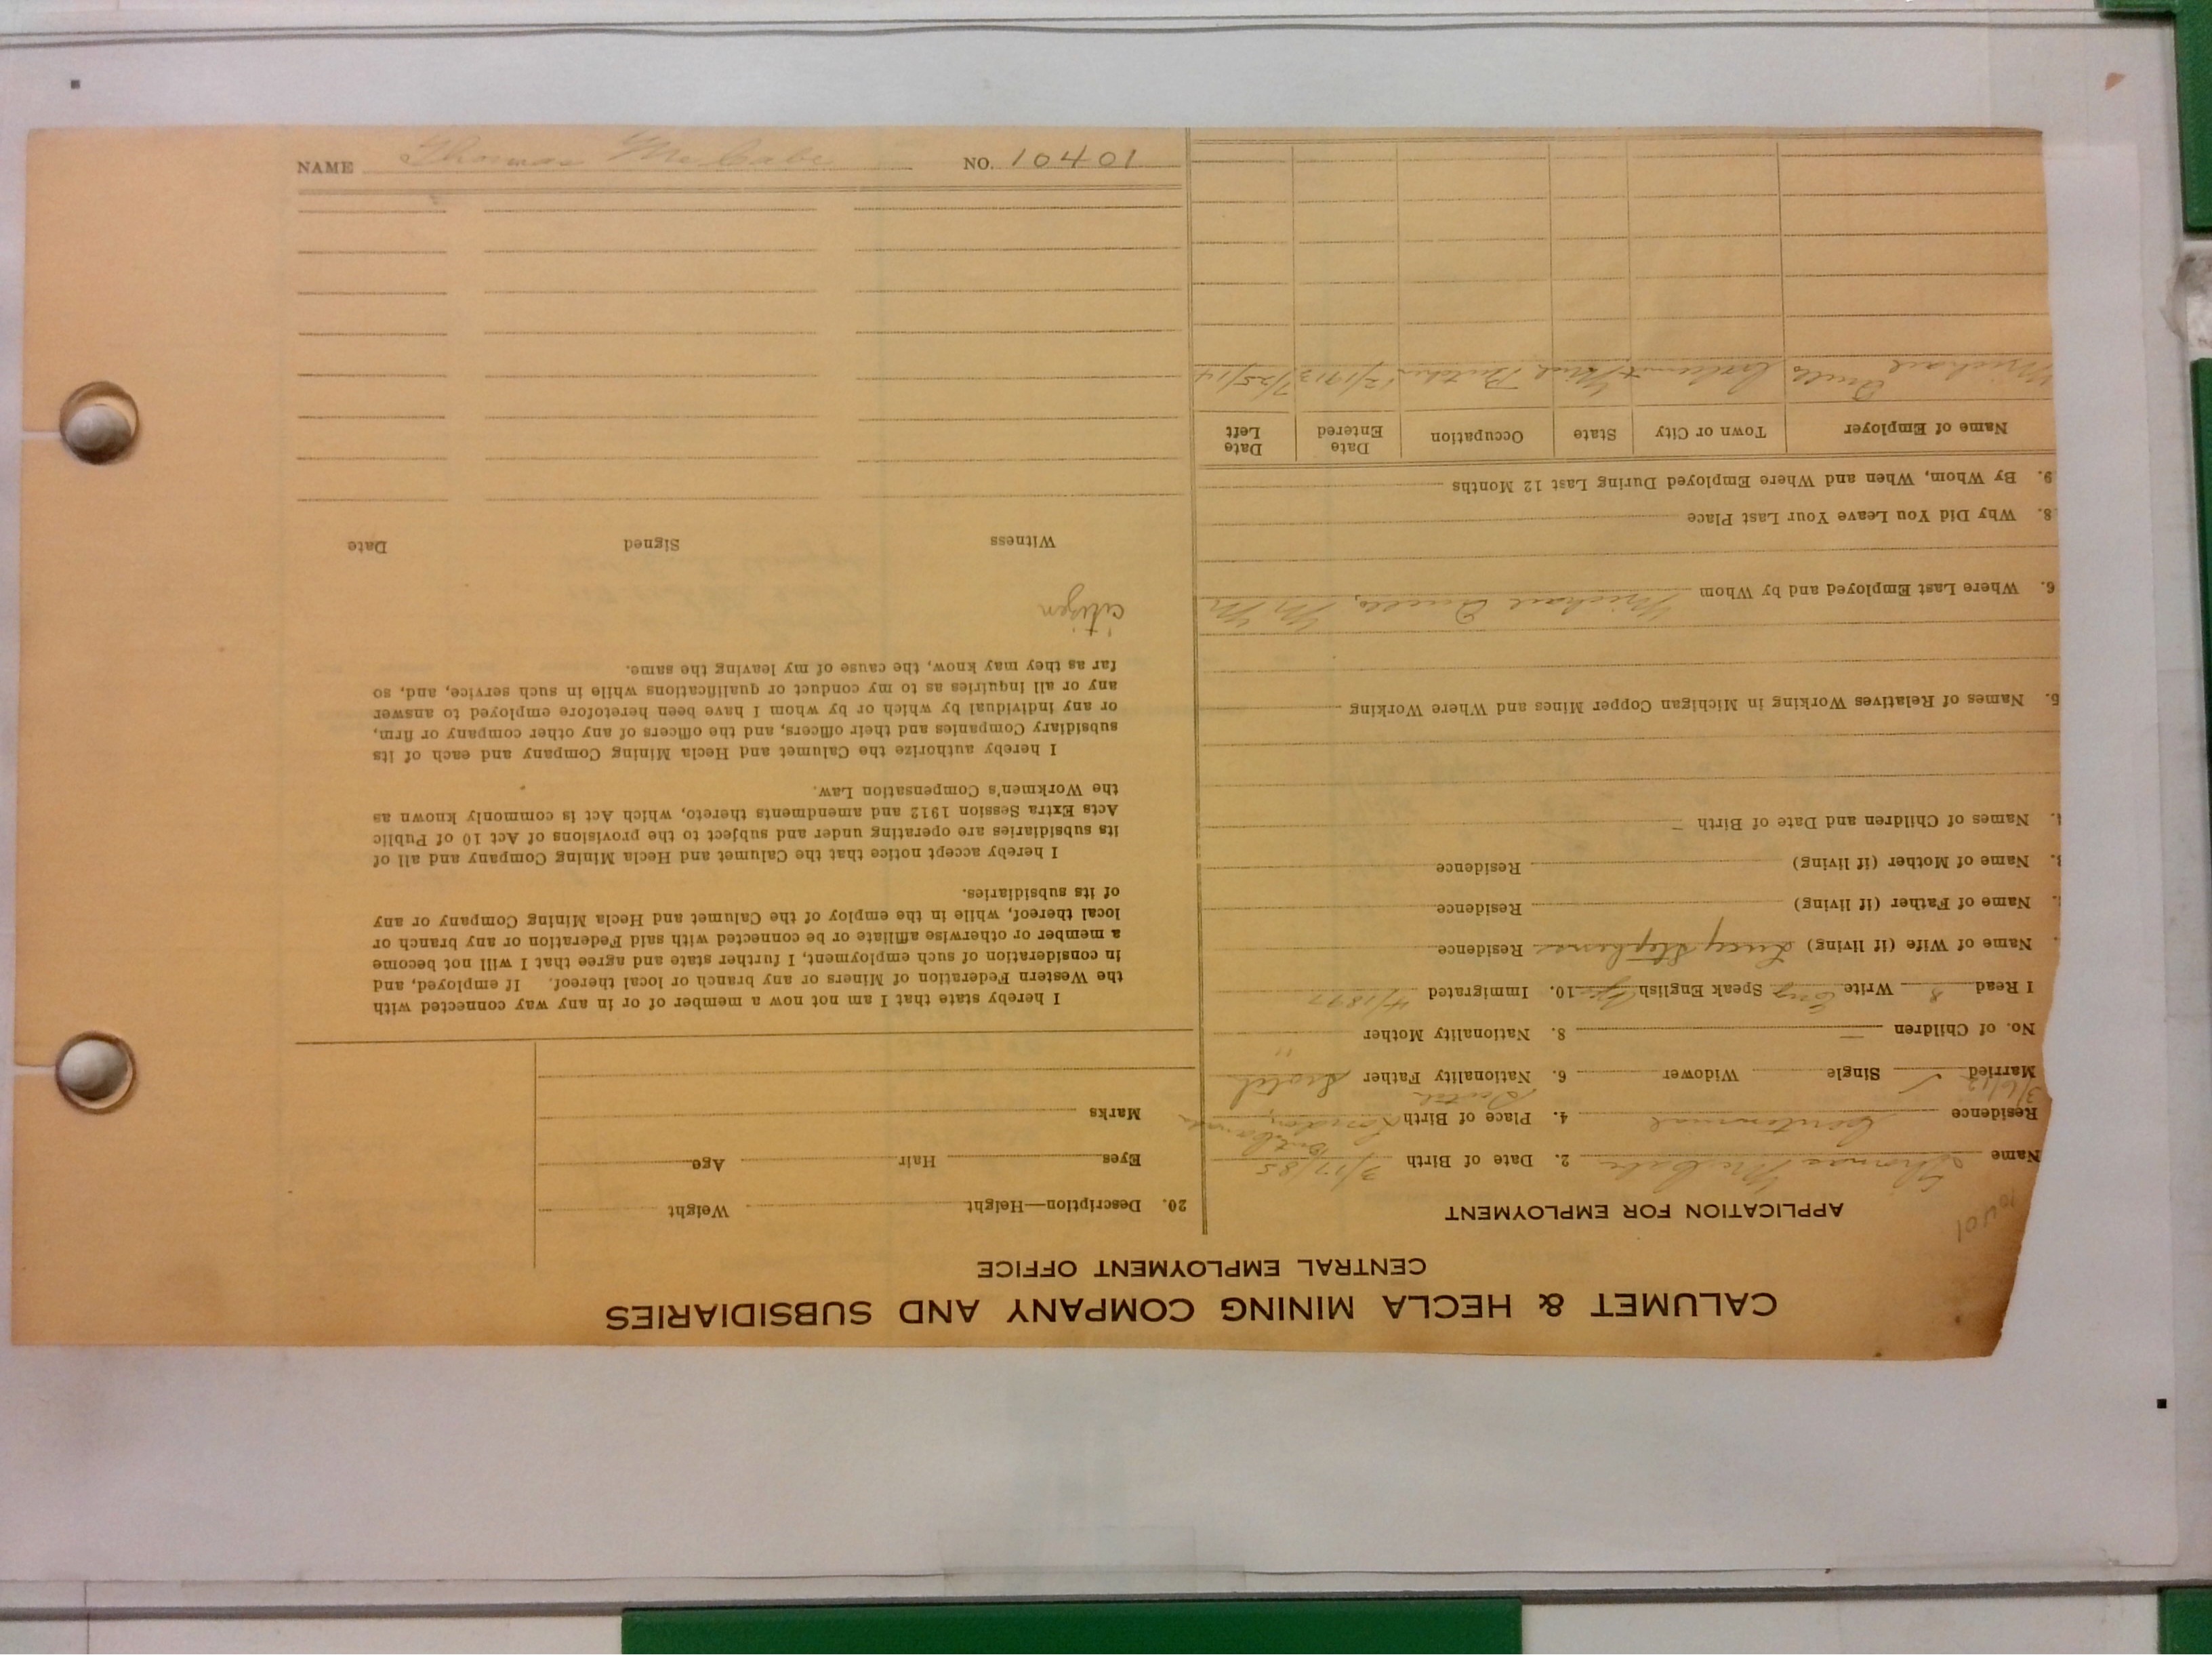 CALUMET & HECLA MINING COMPANY AND SUBSIDIARIES
CENTRAL EMPLOYMENT OFFICE
10401
APPLICATION FOR EMPLOYMENT
Name Thomas McCabe 2. Date of Birth 3/17/85
Residence Centennial 4. Place of Birth London,
3/6/12
Married ✓ Single Widower 6. Nationality Father Scotch
No. of Children — 8. Nationality Mother "
I Read Write Eng Speak English 10. Immigrated 4/1897
Name of Wife (if living) Lucy Stephens Residence
Name of Father (if living) Residence
3. Name of Mother (if living) Residence
4. Names of Children and Date of Birth —
5. Names of Relatives Working in Michigan Copper Mines and Where Working
6. Where Last Employed and by Whom Michael M M
8. Why Did You Leave Your Last Place
9. By Whom, When and Where Employed During Last 12 Months
Name of Employer Town or City State Occupation Date Entered Date Left
Michael Calumet Mich Butcher 12/1913 7/25/14
20. Description—Height Weight
Eyes Hair Age
Marks
I hereby state that I am not now a member of or in any way connected with
the Western Federation of Miners or any branch or local thereof. If employed, and
in consideration of such employment, I further state and agree that I will not become
a member or otherwise affiliate or be connected with said Federation or any branch or
local thereof, while in the employ of the Calumet and Hecla Mining Company or any
of its subsidiaries.
I hereby accept notice that the Calumet and Hecla Mining Company and all of
its subsidiaries are operating under and subject to the provisions of Act 10 of Public
Acts Extra Session 1912 and amendments thereto, which Act is commonly known as
the Workmen's Compensation Law.
I hereby authorize the Calumet and Hecla Mining Company and each of its
subsidiary Companies and their officers, and the officers of any other company or firm,
or any individual by which or by whom I have been heretofore employed to answer
any or all inquiries as to my conduct or qualifications while in such service, and, so
far as they may know, the cause of my leaving the same.
citizen
Witness Signed Date
NAME Thomas McCabe NO. 10401